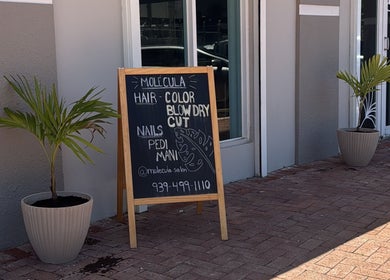 MOLÉCULA
HAIR - COLOR
BLOW DRY
CUT
NAILS
PEDI
MANI
@molecula.salon
939-499-1110